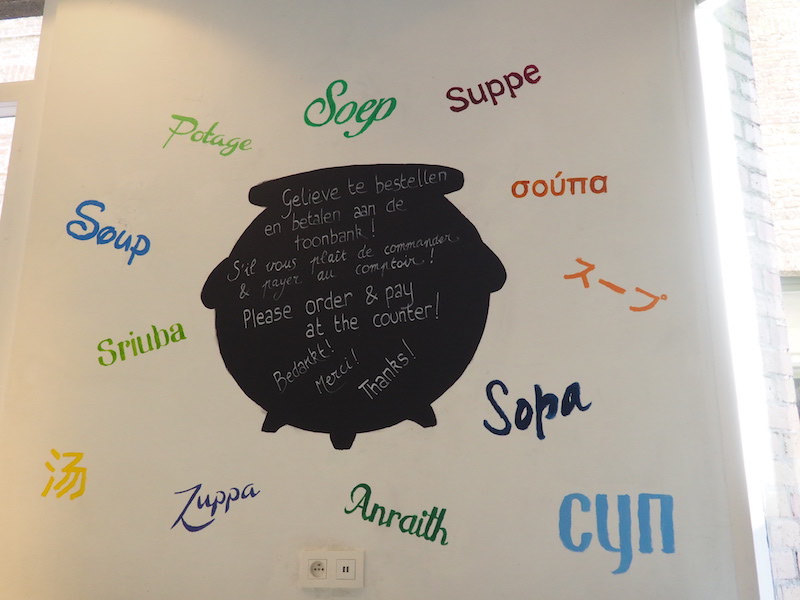 Soep
Suppe
Potage
σούπα
Soup
スープ
Sriuba
Sopa
汤
Zuppa
Anraith
суп
Gelieve te bestellen
en betalen aan de
toonbank!
S'il vous plaît de commander
& payer au comptoir!
Please order & pay
at the counter!
Bedankt!
Merci!
Thanks!